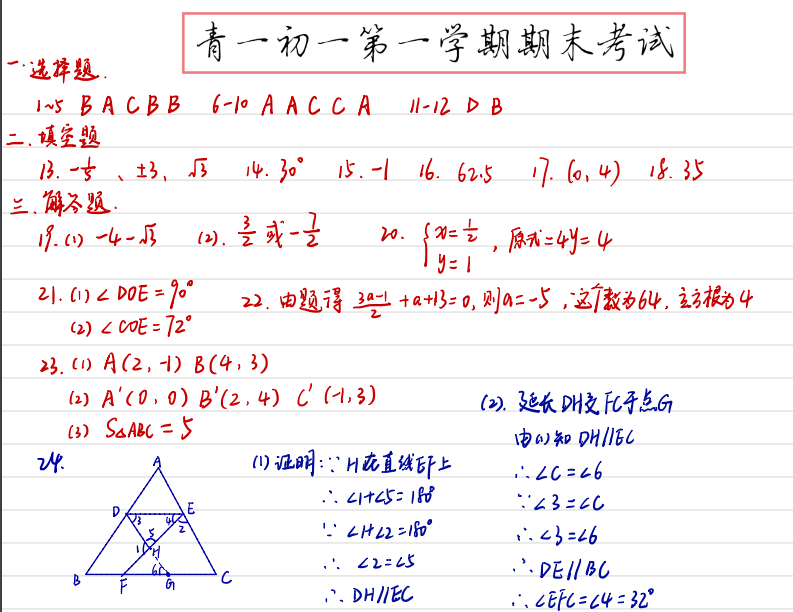 青一初一第一学期期末考试
一.选择题.
1~5 B A C B B 6-10 A A C C A 11-12 D B
二.填空题
13. -1/5 、±3、 √3 14. 30° 15. -1 16. 62.5 17. (0, 4) 18. 35
三.解答题.
19.(1) -4-√3 (2). 3/2 或 -7/2 20. { x=1/2 y=1 , 原式=4y=4
21.(1) ∠DOE=90° 22. 由题得 (3a-1)/2 +a+13=0, 则a=-5 , 这个数为64, 立方根为4
(2) ∠COE=72°
23.(1) A(2, -1) B(4, 3)
(2) A'(0, 0) B'(2, 4) C'(-1, 3)
(3) S△ABC=5
24.
A
D 3 4 E
5 2
1 H
6
B F G C
(1) 证明: ∵ H在直线EF上
∴ ∠1+∠5=180°
∵ ∠1+∠2=180°
∴ ∠2=∠5
∴ DH//EC
(2). 延长DH交FC于点G
由(1)知 DH//EC
∴ ∠C=∠6
∵ ∠3=∠C
∴ ∠3=∠6
∴ DE//BC
∴ ∠EFC=∠4=32°